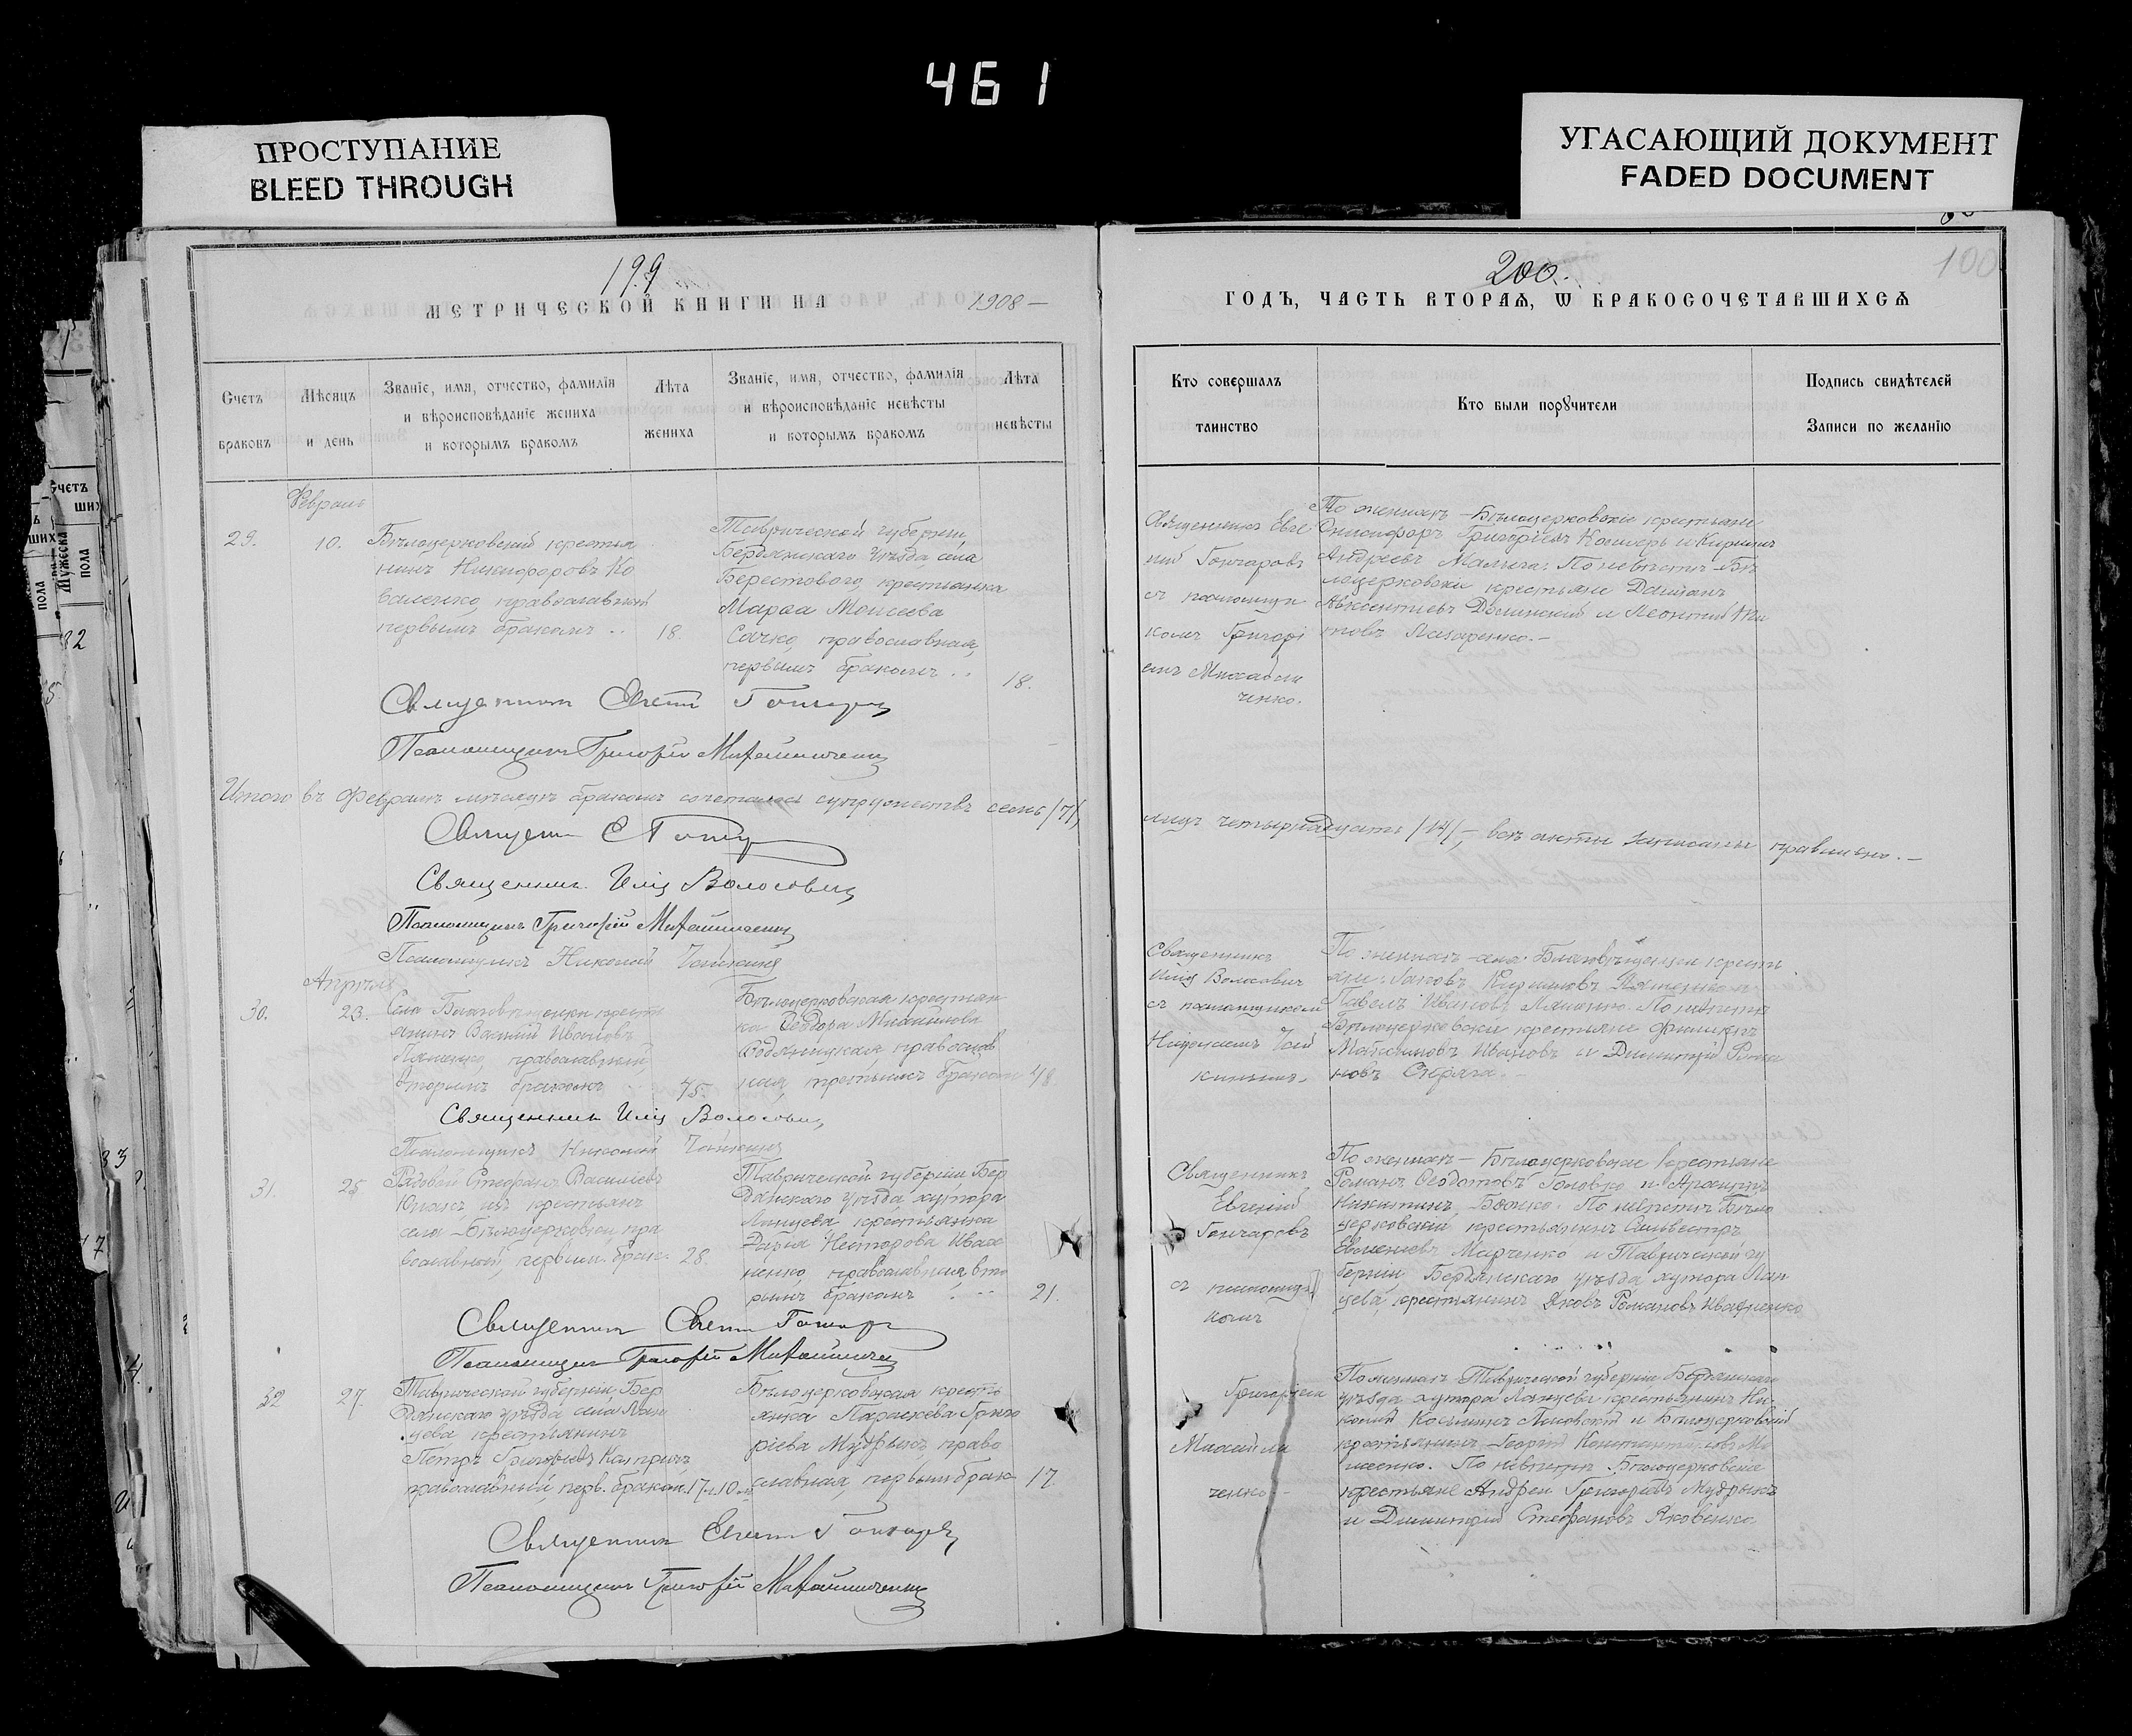 461
ПРОСТУПАНИЕ
BLEED THROUGH
УГАСАЮЩИЙ ДОКУМЕНТ
FADED DOCUMENT
199
МЕТРИЧЕСКОЙ КНИГИ НА 1908 —
Счетъ браковъ
Мѣсяцъ и день
Званіе, имя, отчество, фамилія и вѣроисповѣданіе жениха и которымъ бракомъ
Лѣта жениха
Званіе, имя, отчество, фамилія и вѣроисповѣданіе невѣсты и которымъ бракомъ
Лѣта невѣсты
Февраль
29.
10.
Бѣлоцерковскій крестья
нинъ Никифоровъ Ко
валенко, православный
первымъ бракомъ
18.
Таврической губерніи
Бердянскаго уѣзда села
Берестового, крестьянка
Марѳа Моисеева
Сачко, православная,
первымъ бракомъ
18.
Священникъ Евгеній Гончаровъ
Псаломщикъ Григорій
Итого въ Февралѣ мѣсяцѣ бракомъ сочеталось супружествъ семь /7/,
Священникъ Е Гончаровъ
Священникъ Илія Волосовичъ
Псаломщикъ Григорій
Псаломщикъ Николай Чайкинъ
Апрѣль
30.
23.
Села Благовѣщенки крест
янинъ Василій Ивановъ
православный,
вторымъ бракомъ
45.
Бѣлоцерковская крестьян
ка Ѳеодора Михайлова
православ
ная, третьимъ бракомъ
48
Священникъ Илія Волосовичъ
Псаломщикъ Николай Чайкинъ
31.
25
Рядовой Стефанъ Васильевъ
изъ крестьянъ
села Бѣлоцерковки, пра
вославный, первым. брак.
28.
Таврической губерніи Бер
дянскаго уѣзда хутора
Ланцева крестьянка
Дарья Несторова Ивах
ненко, православная, вто
рымъ бракомъ
21.
Священникъ Евгеній Гончаровъ
Псаломщикъ Григорій
32
27.
Таврической губерніи, Бер
дянскаго уѣзда села Лан
цева крестьянинъ
Петръ Григорьевъ
православный, перв. браком.
17 л. 10 м.
Бѣлоцерковская кресть
янка Параскева Григо
ріева Мудрыкъ, право
славная, первым брак
17.
Священникъ Евгеній Гончаровъ
Псаломщикъ Григорій
200.
100
ГОДЪ, ЧАСТЬ ВТОРАЯ, Ѡ БРАКОСОЧЕТАВШИХСЯ
Кто совершалъ таинство
Кто были порꙋчители
Подпись свидѣтелей Записи по желанію
Священникъ Евге
ній Гончаровъ
съ псаломщи
комъ Григорі
емъ
ченко.
По женихѣ — Бѣлоцерковскіе крестьяне
Онисифоръ Григорьевъ и Кириллъ
Андреевъ По невѣстѣ — Бѣ
лоцерковскіе крестьяне Даміанъ
Авксентіевъ Долинскій и Леонтій Ни
Лазаренко. —
лицъ четырнадцать /14/, — всѣ акты записаны правильно. —
Священникъ
Илія Волосовичъ
съ псаломщикомъ
Николаемъ Чай
кинымъ. —
По женихѣ — села Благовѣщенки крестья
не: Іаковъ Кирилловъ и
Павелъ Ивановъ По невѣстѣ
Бѣлоцерковскіе крестьяне Филиппъ
Ивановъ и Димитрій Рома
новъ
Священникъ
Евгеній
Гончаровъ
съ псаломщи
комъ
По женихѣ — Бѣлоцерковскіе крестьяне
Романъ Ѳеодотовъ Головко и
Никитинъ Бойко. По невѣстѣ Бѣло
церковскій крестьянинъ Сильвестръ
Марченко и Таврической гу
берніи, Бердянскаго уѣзда хутора Лан
цева, крестьянинъ Яковъ Романовъ Ивахненко
Григоріем
ченко —
По женихѣ — Таврической губерніи Бердянскаго
уѣзда хутора Ланцева крестьянинъ Ни
колай Косьминъ и Бѣлоцерковскій
крестьянинъ Георгій Константиновъ
По невѣстѣ Бѣлоцерковскіе
крестьяне Андрей Григорьевъ Мудрыкъ
и Димитрій Стефановъ Яковенко.